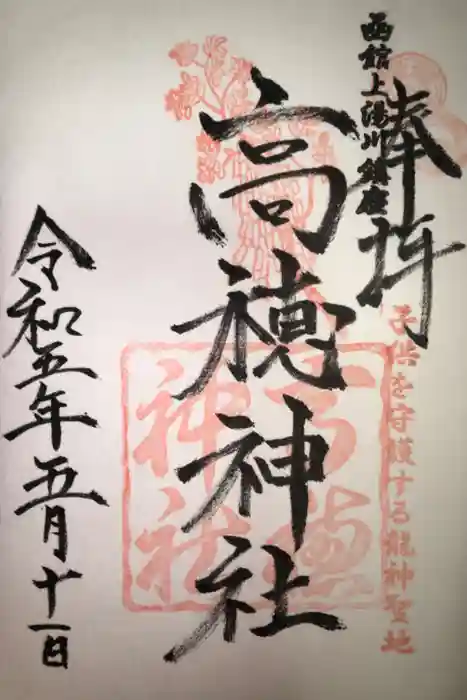 奉拝
函館上湯川鎮座
子供を守護する龍神聖地
高穂神社
高穂神社
令和五年五月十一日